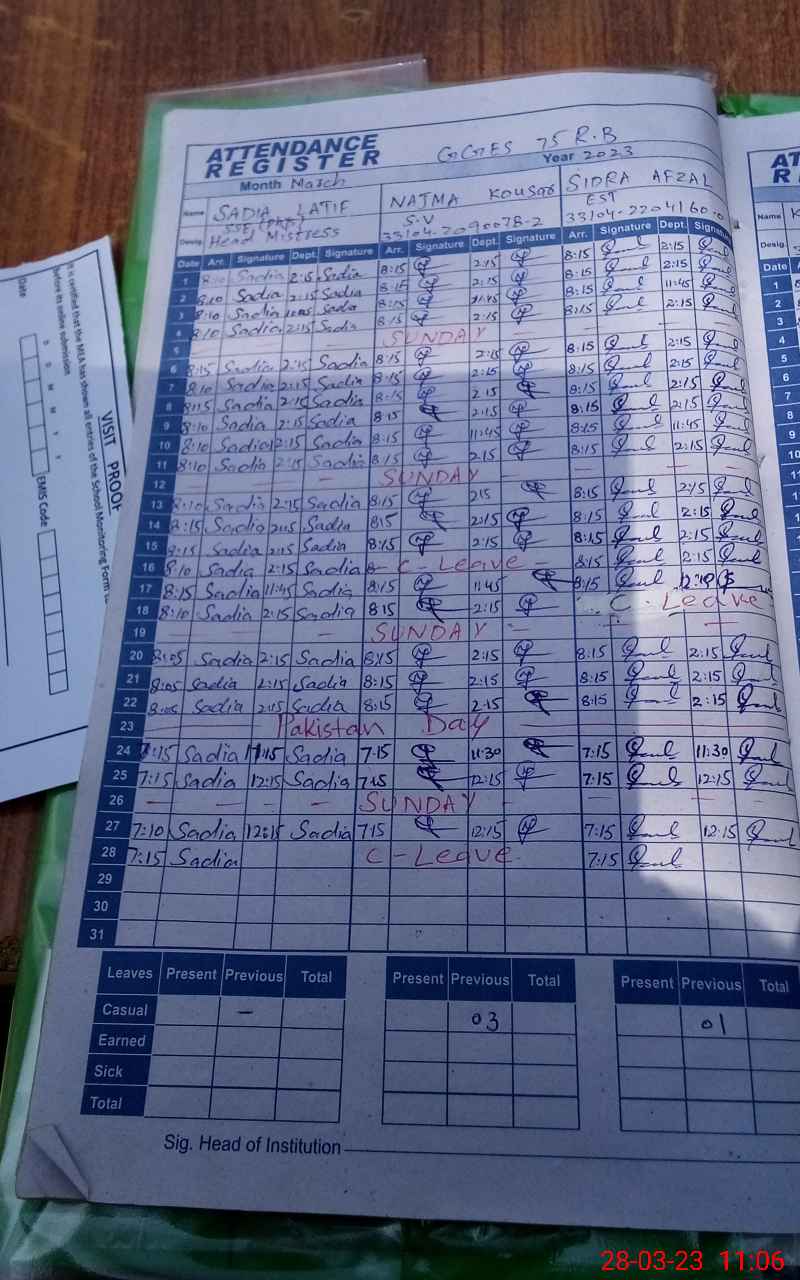 ATTENDANCE REGISTER
GGES 75 R.B
Month March
Year 2023
Name SADIA LATIF
NAJMA KOUSAR
SIDRA AFZAL
SSE
Desig. Head Mistress
S.V
EST
Date Arr. Signature Dept. Signature Arr. Signature Dept. Signature Arr. Signature Dept. Signature
1 8:10 Sadia 2:15 Sadia 8:15 2:15 8:15 2:15
2 8:10 Sadia 2:15 Sadia 8:15 2:15 8:15 2:15
3 8:10 Sadia 11:45 Sadia 8:15 11:45 8:15 11:45
4 8:10 Sadia 2:15 Sadia 8:15 2:15 8:15 2:15
5 SUNDAY
6 8:15 Sadia 2:15 Sadia 8:15 2:15 8:15 2:15
7 8:10 Sadia 2:15 Sadia 8:15 2:15 8:15 2:15
8 8:15 Sadia 2:15 Sadia 8:15 2:15 8:15 2:15
9 8:10 Sadia 2:15 Sadia 8:15 2:15 8:15 2:15
10 8:10 Sadia 2:15 Sadia 8:15 11:45 8:15 11:45
11 8:10 Sadia 2:15 Sadia 8:15 2:15 8:15 2:15
12 SUNDAY
13 8:10 Sadia 2:15 Sadia 8:15 2:15 8:15 2:15
14 8:15 Sadia 2:15 Sadia 8:15 2:15 8:15 2:15
15 8:15 Sadia 2:15 Sadia 8:15 2:15 8:15 2:15
16 8:10 Sadia 2:15 Sadia C-Leave 8:15 2:15
17 8:15 Sadia 11:45 Sadia 8:15 11:45 8:15
18 8:10 Sadia 2:15 Sadia 8:15 2:15 C-Leave
19 SUNDAY
20 8:05 Sadia 2:15 Sadia 8:15 2:15 8:15 2:15
21 8:05 Sadia 2:15 Sadia 8:15 2:15 8:15 2:15
22 8:05 Sadia 2:15 Sadia 8:15 2:15 8:15 2:15
23 Pakistan Day
24 Sadia Sadia 7:15 11:30 7:15 11:30
25 7:15 Sadia 12:15 Sadia 7:15 12:15 7:15 12:15
26 SUNDAY
27 7:10 Sadia 12:15 Sadia 7:15 12:15 7:15 12:15
28 7:15 Sadia C-Leave 7:15
29
30
31
Leaves Present Previous Total Present Previous Total Present Previous Total
Casual - 03 01
Earned
Sick
Total
Sig. Head of Institution
VISIT PROOF
It is certified that the MEA has shown all entries of the School Monitoring Form
before its online submission
Date
D D M M Y Y
EMIS Code
Name
Desig.
Date
1
2
3
4
5
6
7
8
9
10
28-03-23 11:06